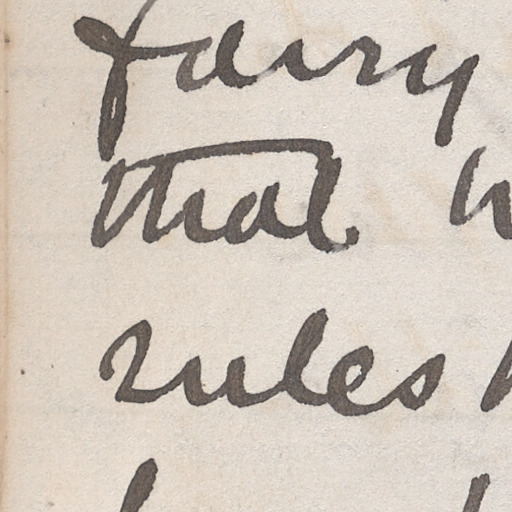 fairy
that
rules